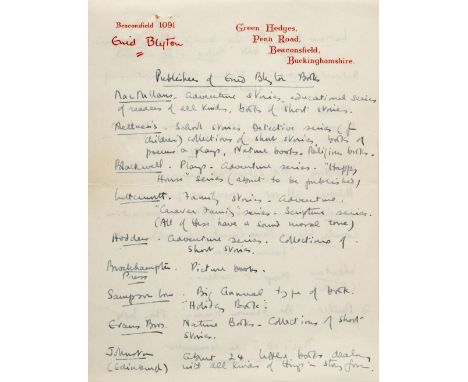 Beaconsfield 1091
Enid Blyton
Green Hedges,
Penn Road,
Beaconsfield,
Buckinghamshire.
Publishers of Enid Blyton Books
MacMillans. Adventure stories, educational series
of readers of all kinds, books of short stories.
Methuen's. School stories. Detective series (for
children) collections of short stories, books of
poems & plays, Nature books. Religious books.
Blackwell. Plays. Adventure series. "Happy
House" series (about to be published)
Lutterworth. Family stories. Adventure.
"Caravan Family" series. Scripture series.
(All of these have a sound moral tone)
Hodders. Adventure series. Collections of
short stories.
Brockhampton Press Picture books.
Sampson Low. Big Annual type of book.
"Holiday Book".
Evans Bros. Nature Books. Collections of short
stories.
Johnston About 24 little books dealing
(Edinburgh) with all kinds of things in story form.